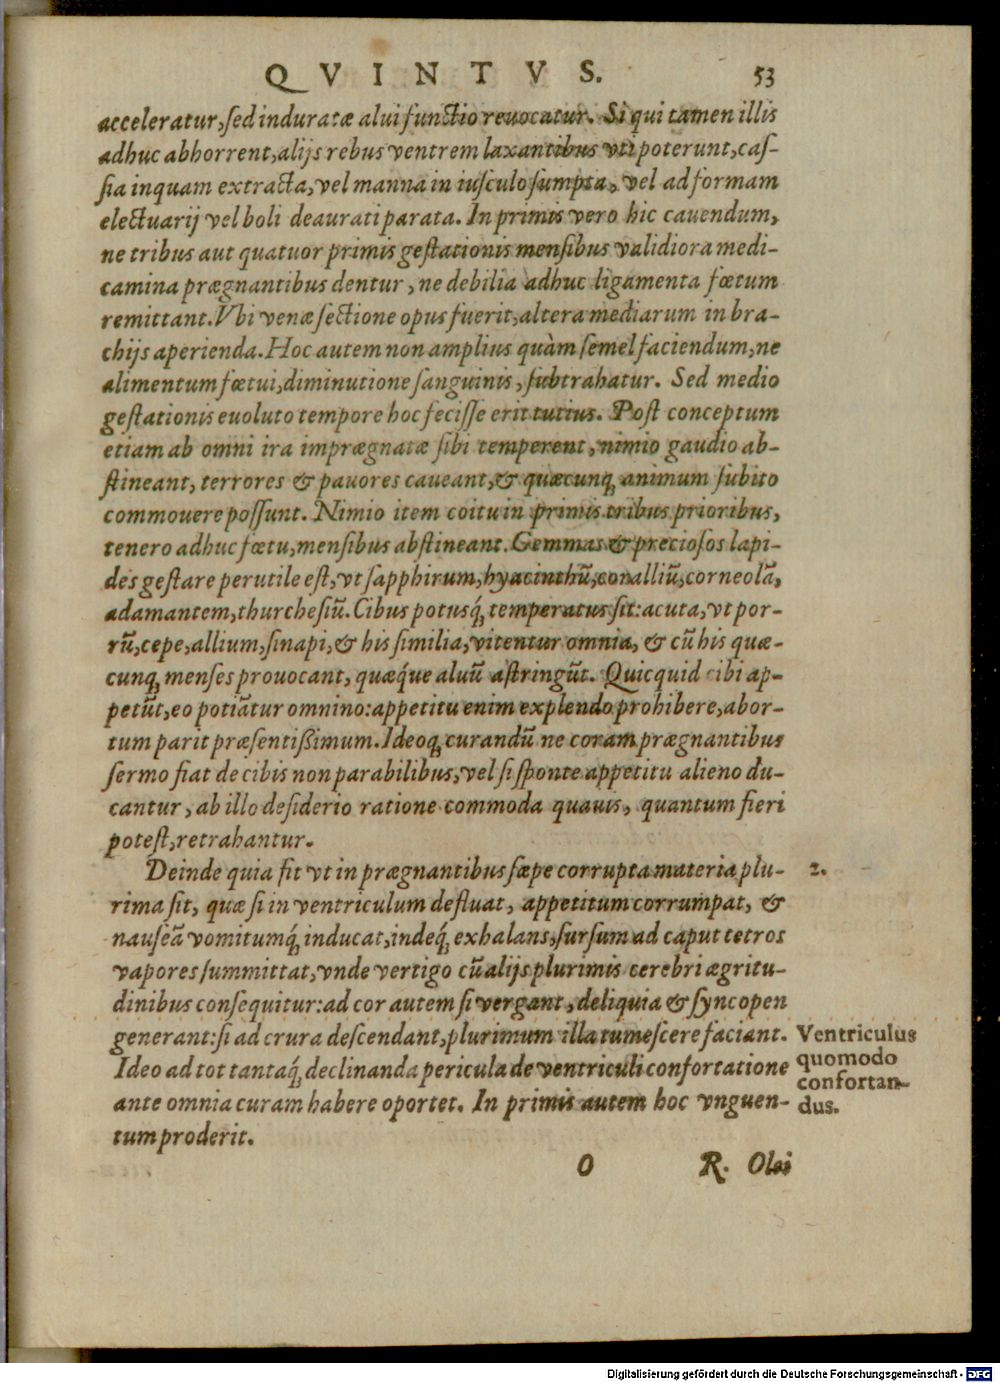 QVINTVS. 53
acceleratur, sed induratæ alui functio reuocatur. Si qui tamen illis
adhuc abhorrent, alijs rebus ventrem laxantibus vti poterunt, cas-
sia inquam extracta, vel manna in iusculo sumpta, vel ad formam
electuarij vel boli deaurati parata. In primis vero hic cauendum,
ne tribus aut quatuor primis gestationis mensibus validiora medi-
camina prægnantibus dentur, ne debilia adhuc ligamenta fœtum
remittant. Vbi venæ sectione opus fuerit, altera mediarum in bra-
chijs aperienda. Hoc autem non amplius quàm semel faciendum, ne
alimentum fœtui, diminutione sanguinis, subtrahatur. Sed medio
gestationis euoluto tempore hoc fecisse erit tutius. Post conceptum
etiam ab omni ira imprægnatæ sibi temperent, nimio gaudio ab-
stineant, terrores & pauores caueant, & quæcunq; animum subito
commouere possunt. Nimio item coitu in primis tribus prioribus,
tenero adhuc fœtu, mensibus abstineant. Gemmas & preciosos lapi-
des gestare perutile est, vt sapphirum, hyacinthũ, coralliũ, corneolã,
adamantem, thurchesiũ. Cibus potusq́; temperatus sit: acuta, vt por-
rũ, cepe, allium, sinapi, & his similia, vitentur omnia, & cũ his quæ-
cunq; menses prouocant, quæq́ue aluũ astringũt. Quicquid cibi ap-
petũt, eo potiãtur omnino: appetitu enim explendo prohibere, abor-
tum parit præsentißimum. Ideoq; curandũ ne coram prægnantibus
sermo fiat de cibis non parabilibus, vel si sponte appetitu alieno du-
cantur, ab illo desiderio ratione commoda quauis, quantum fieri
potest, retrahantur.
Deinde quia fit vt in prægnantibus sæpe corrupta materia plu- 2.
rima sit, quæ si in ventriculum defluat, appetitum corrumpat, &
nauseã vomitumq́; inducat, indeq́; exhalans, sursum ad caput tetros
vapores summittat, vnde vertigo cũ alijs plurimis cerebri ægritu-
dinibus consequitur: ad cor autem si vergant, deliquia & syncopen
generant: si ad crura descendant, plurimum illa tumescere faciant.
Ideo ad tot tantaq́; declinanda pericula de ventriculi confortatione
ante omnia curam habere oportet. In primis autem hoc vnguen-
tum proderit.
Ventriculus
quomodo
confortan-
dus.
O R. Olei
Digitalisierung gefördert durch die Deutsche Forschungsgemeinschaft - DFG